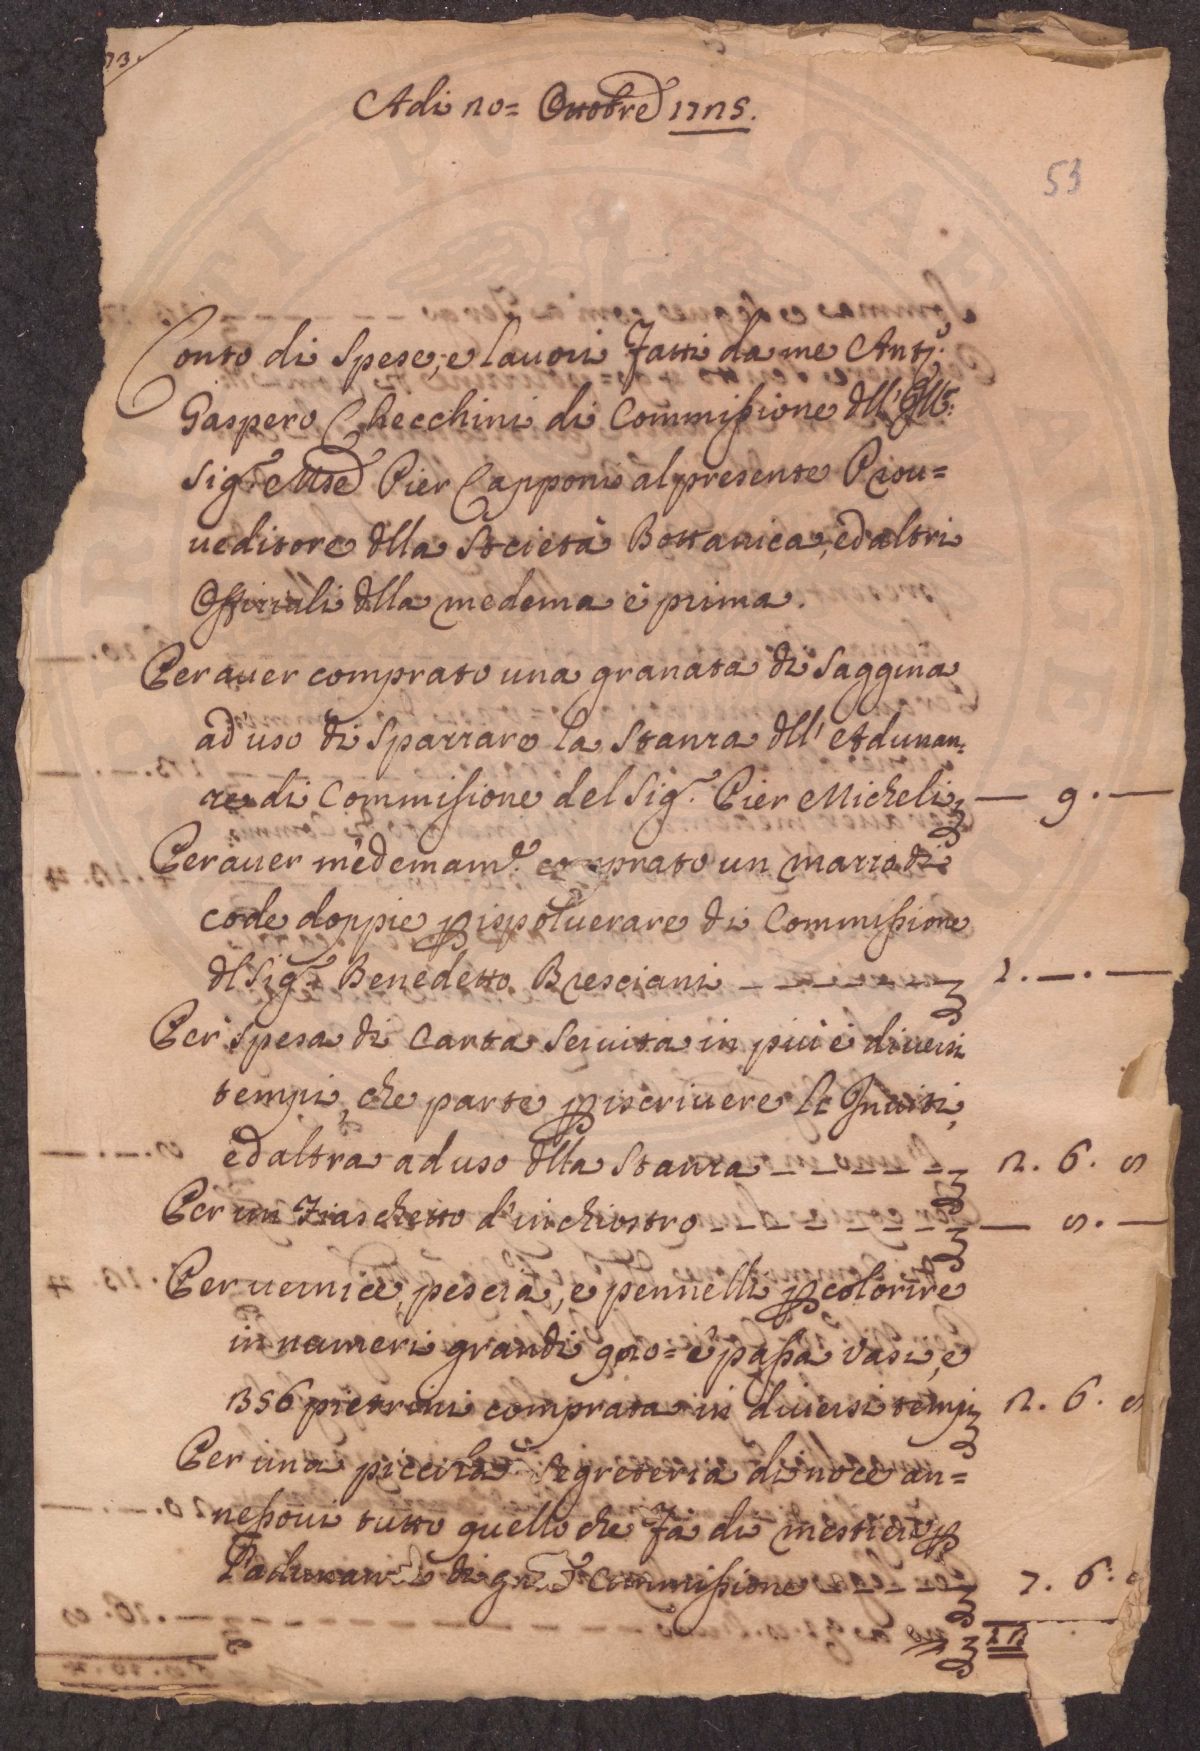 Adi 20= Ottobre 1725.
53
Conto di Spese, e lauori Fatti da me Ant:
Gaspero Checchini di Commissione dll' Ill:
Sig: Pier Capponi al presente Prou=
ueditore dlla Società Bottanica, ed altri
Offiziali dlla medema è prima.
Per auer comprato una granata di Saggina
ad uso di Sparzare la Stanza dll' Adunan:
ze di Commissione del Sig: Pier Micheli — 9. —
Per auer medemam: comprato un mazzo di
code doppie p ispoluerare di Commissione
dl Sig: Benedetto Bresciani 1. —. —
Per spesa di Carta Seruita in più è diuersi
tempi, che parte p iscriuere le Inuiti,
ed altra ad uso dlla Stanza 2. 6. 8
Per un Fiaschetto d'inchiostro — 8. —
Per uernice, pescia, e pennelli p colorire
in numeri grandi è passa Vasi, e
1356 pietrini comprata in diuersi tempi 2. 6. 8
Per una piccola Segreteria di noce an=
nessoui tutto quello che Fà di mestiere p
l'adunanze di Commissione 7. 6.